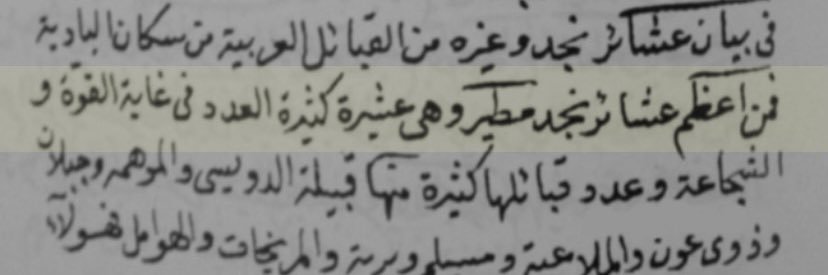 فى بيان عشائر نجد وغيره من القبائل العربية من سكان البادية
فمن اعظم عشائر نجد مطير وهى عشيرة كثيرة العدد فى غاية القوة و
الشجاعة وعدد قبائلها كثيرة منها قبيلة الدويسى والموهه وجبلان
وذوى عون والملاعبة ومسيلم وبريه والمريخات والهوامل فهولاء